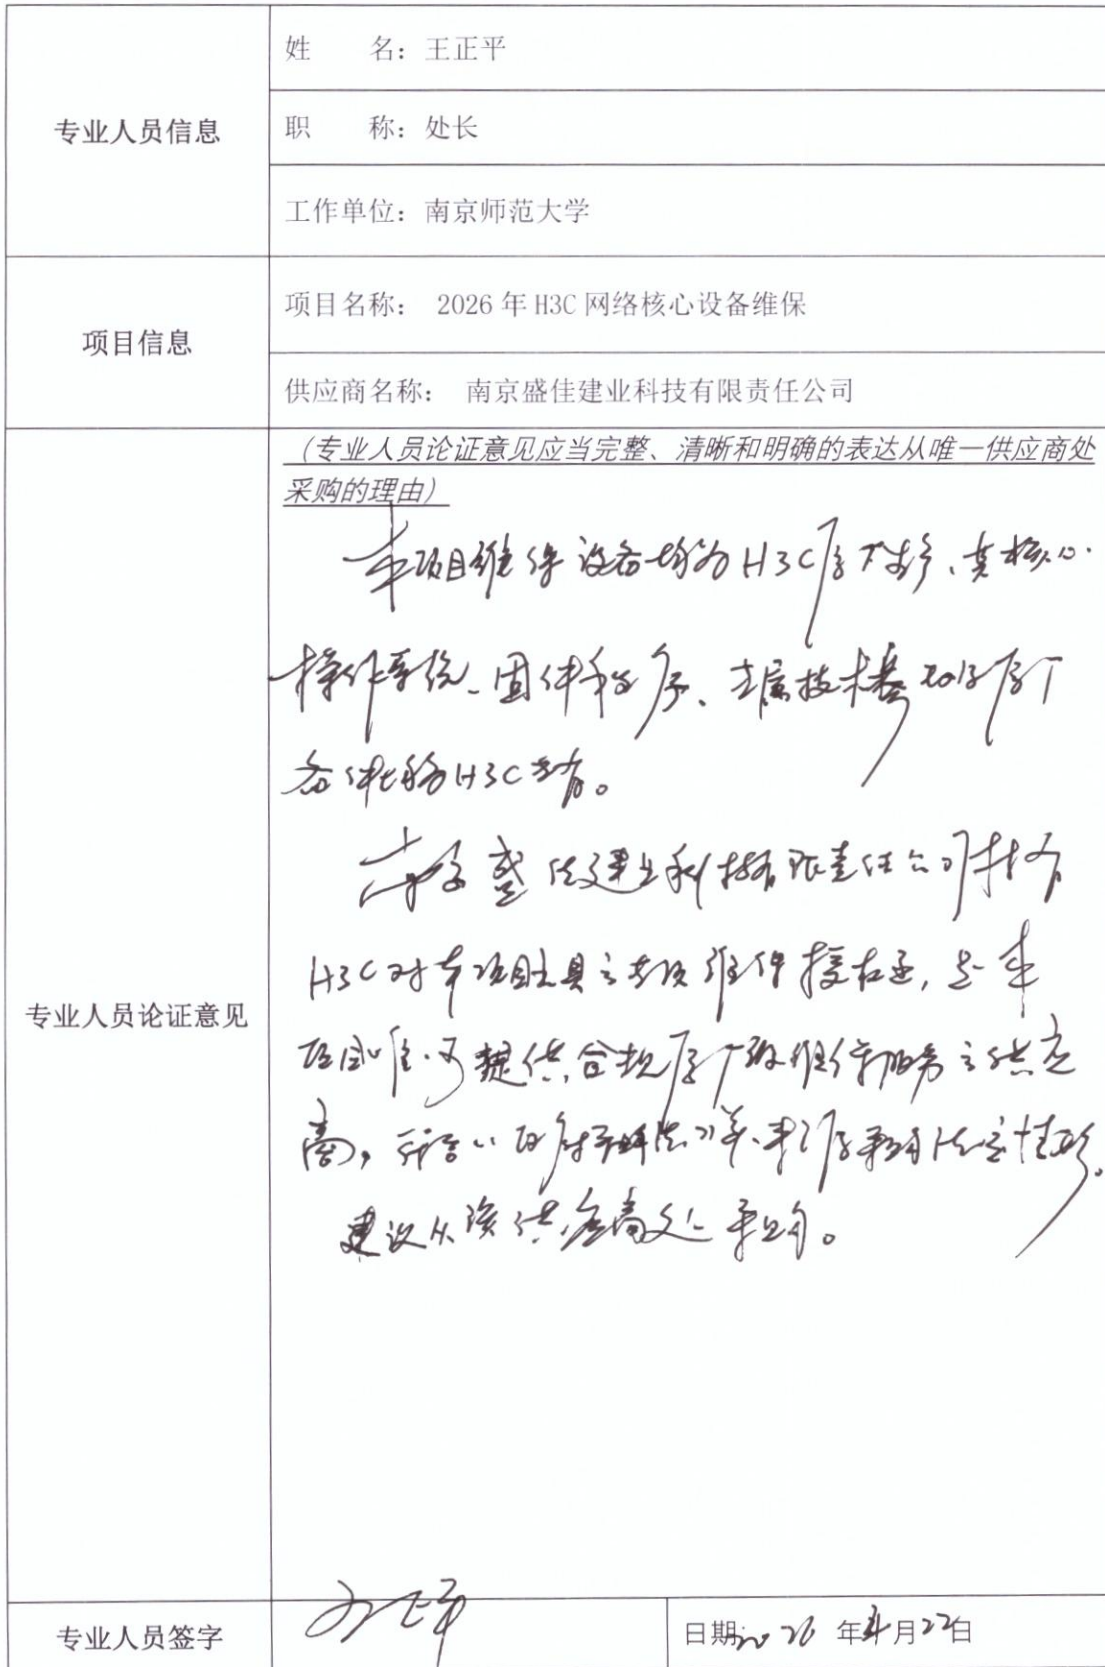 专业人员信息
姓 名：王正平
职 称：处长
工作单位：南京师范大学
项目信息
项目名称： 2026年H3C网络核心设备维保
供应商名称： 南京盛佳建业科技有限责任公司
专业人员论证意见
（专业人员论证意见应当完整、清晰和明确的表达从唯一供应商处
采购的理由）
本项目维保设备均为H3C原厂生产、其核心
操作系统、固件程序、专属技术 原厂
备件均为H3C专有。
南京盛佳建业科技有限责任公司持有
H3C对本项目出具之专项维保授权函，是本
项目唯一可提供合规原厂级维保服务之供应
商，符合《政府采购法》 采购法定情形。
建议从该供应商处采购。
专业人员签字
王正平
日期：2026年4月22日